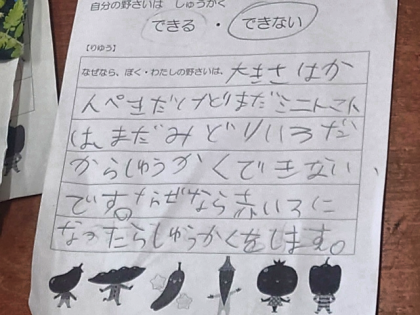 自分の野さいは しゅうかく
できる ・ できない
【りゆう】
なぜなら、ぼく・わたしの野さいは、大きさはか
んぺきだけどまだミニトマト
は、まだみどりいろだ
からしゅうかくできない
です。なぜなら赤いろに
なったらしゅうかくをします。